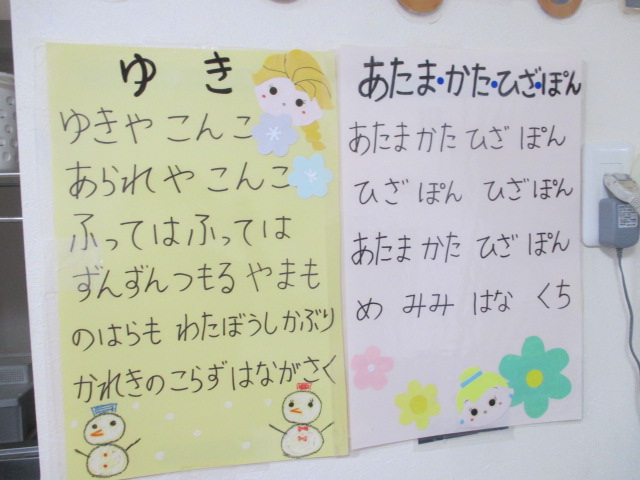 ゆき
ゆきや こんこ
あられや こんこ
ふっては ふっては
ずんずん つもる やまも
のはらも わたぼうし かぶり
かれき のこらず はながさく
あたま・かた・ひざ・ぽん
あたま かた ひざ ぽん
ひざ ぽん ひざ ぽん
あたま かた ひざ ぽん
め みみ はな くち